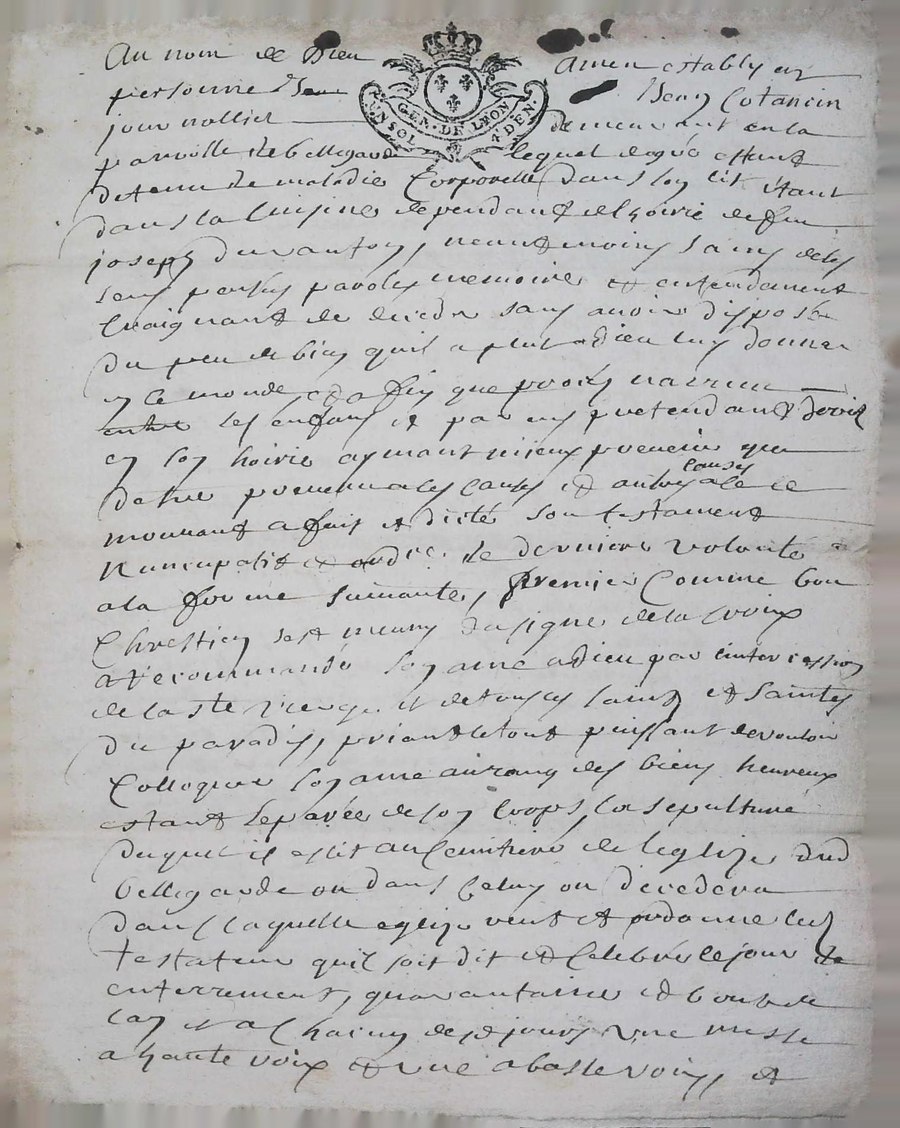 Au nom de Dieu Amen estably en
GEN. DE LEON
UN SOL 4 DEN.
personne Benoy Cotancin
journallier demeurant en la
parroisse de bellegarde lequel de gré estant
detenu de maladie Corporelle dans son lit étant
dans la Cuisine dependant de lhoirie de feu
joseph durantoy, neantmoins sain de ses
sens parolle memoire et entendement
Craignant de deceder sans avoir disposé
du peu de bien quil a plut a dieu luy donner
en Ce monde et afin que procés narrive
entre ses enfans et par eux pretendant droit
en son hoirie aymant mieux prevenir que
destre prevenu a ces Causes et autres a ce le
causes
mouvant a fait et dicté son testament
Nuncupatif et ordce. de derniere volonté
a la forme suivante, premier Comme bon
Chrestien sest muny du signe de la Croix
a recommandé son ame a dieu par lintercession
de la ste vierge et de tous les saints et saintes
du paradis, priant le tout puissant de vouloir
Colloquer son ame au rang des bien heureux
estant separée de son Corps, la sepulture
duquel il eslit au Cemitiere de leglize dud
bellegarde ou dans Celuy ou decedera
dans laquelle eglize veut et ordonne led
testateur quil soit dit et Celebré le jour de
enterrement, quarantaine et bout de
lan et a Chacun desd jours une messe
a haute voix et une a basse voix, et